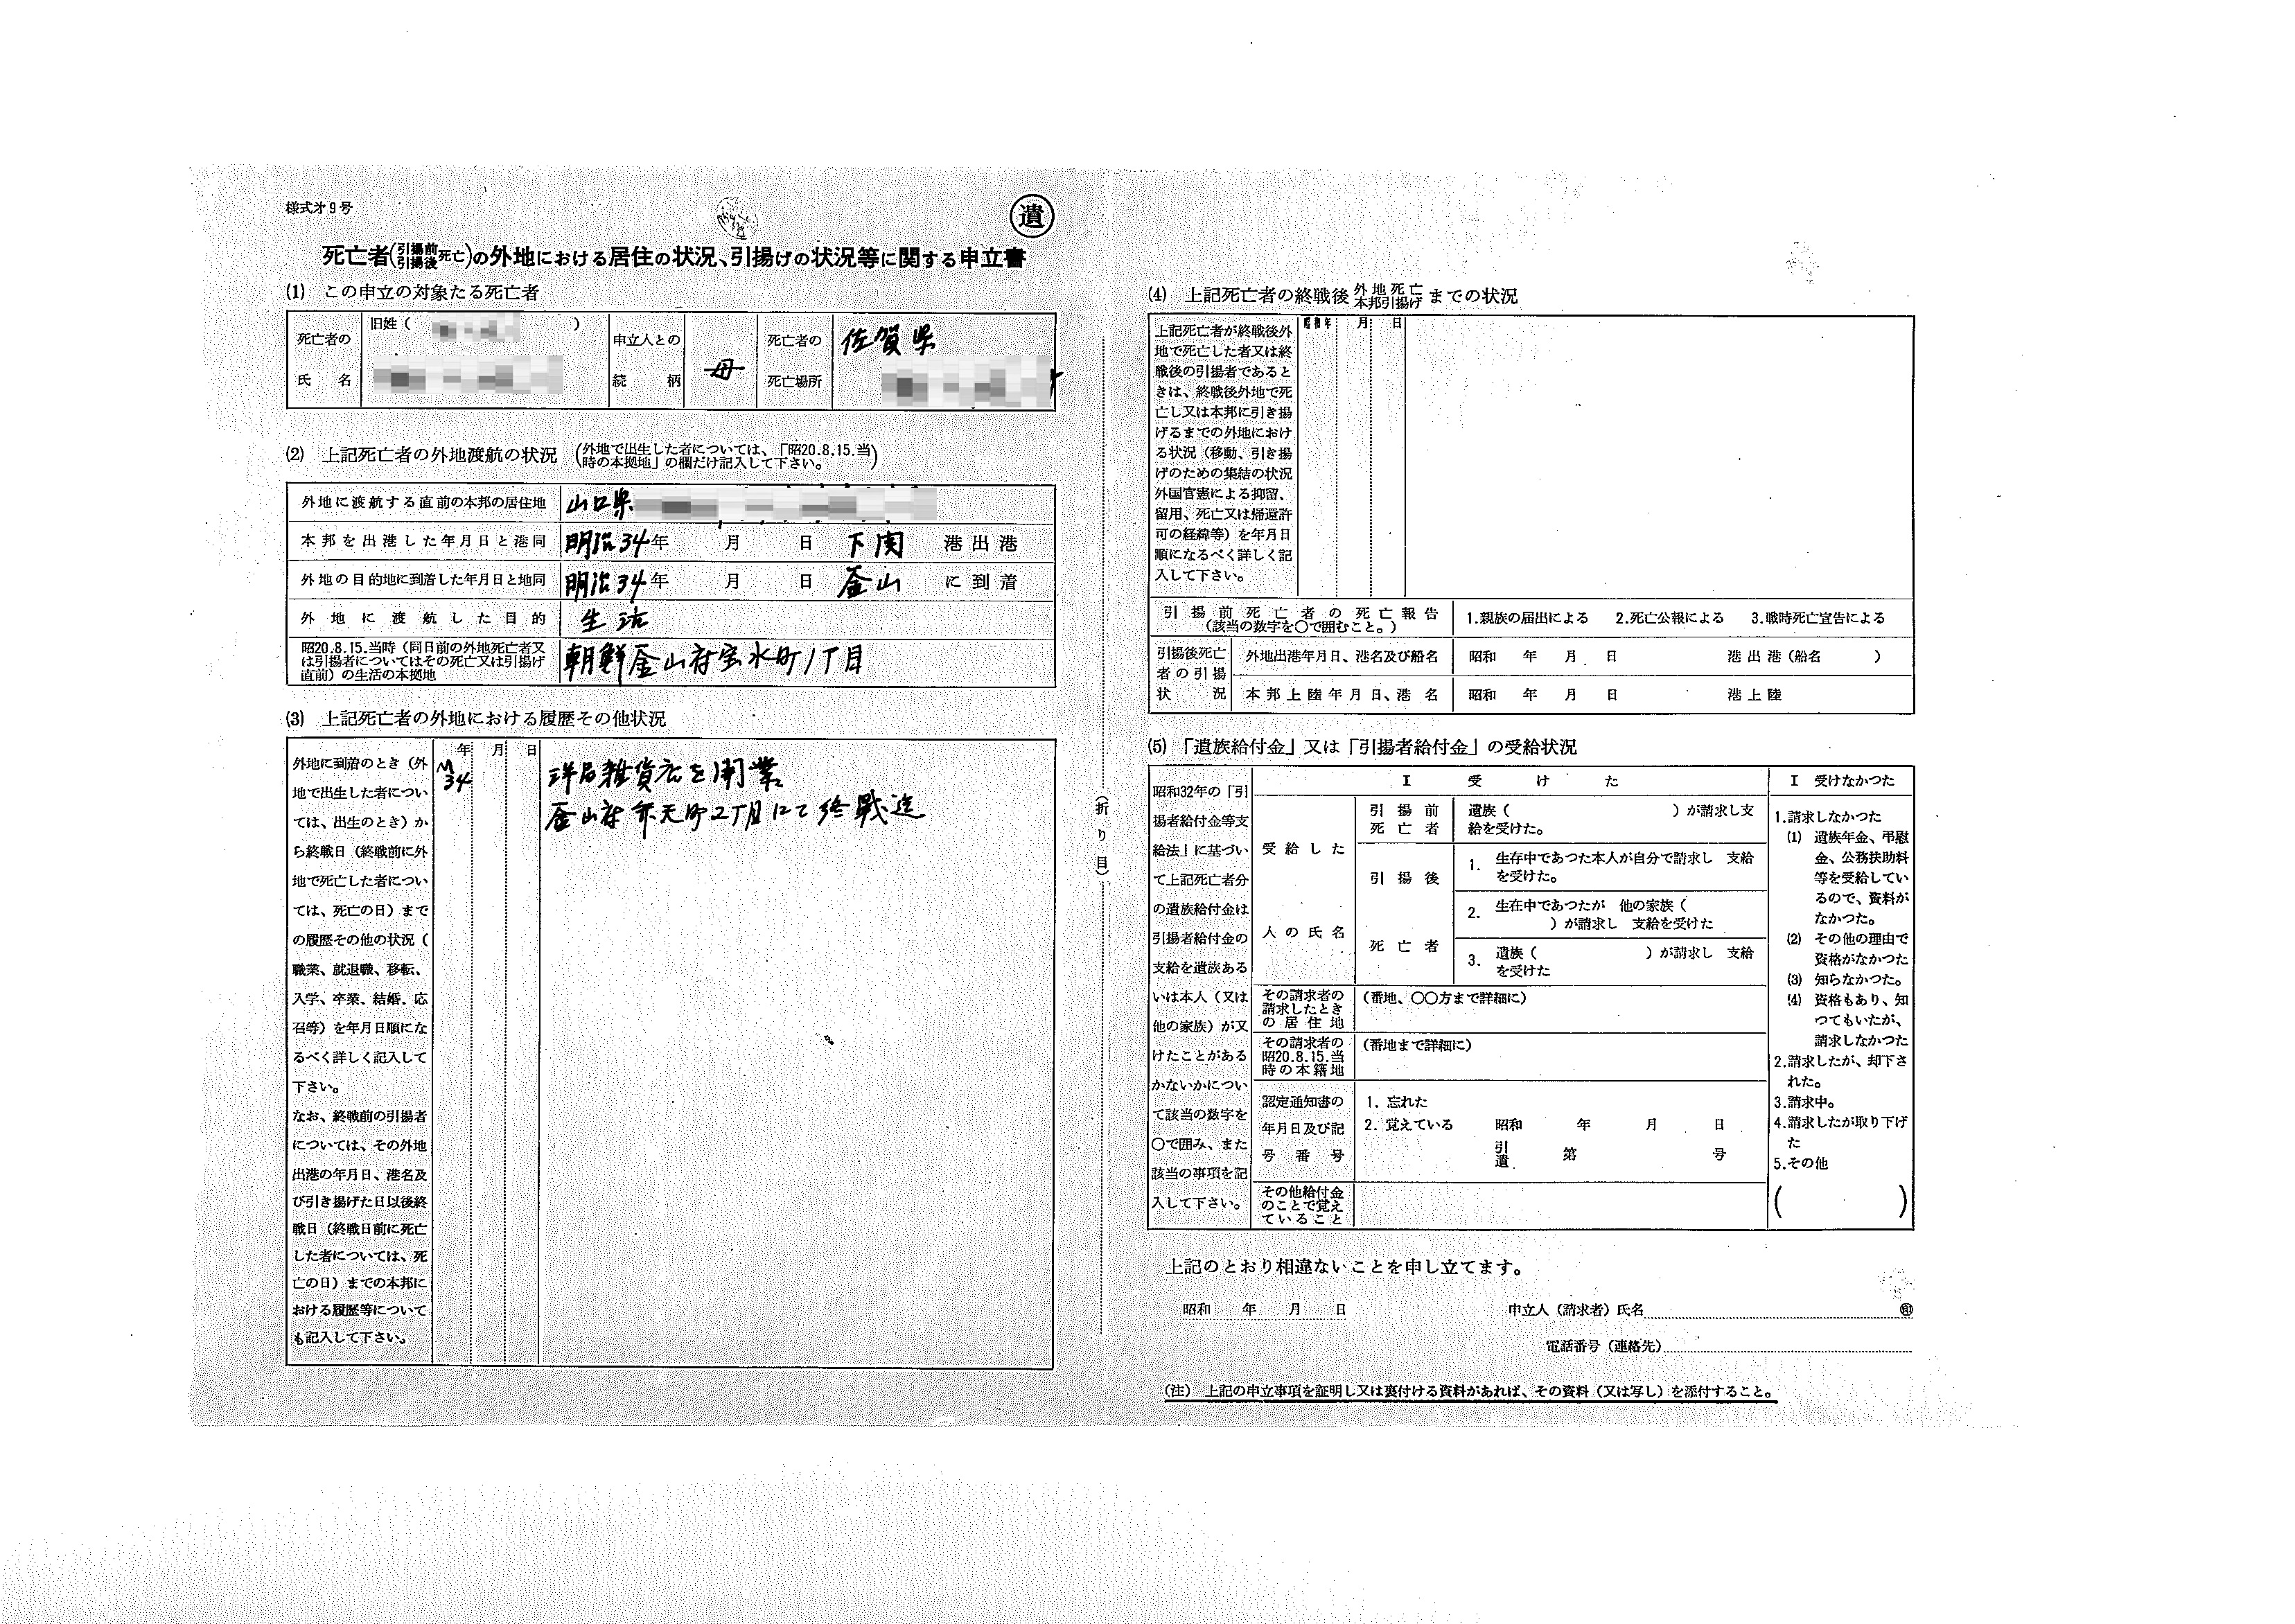 様式才9号
遺
死亡者(引揚前引揚後死亡)の外地における居住の状況、引揚げの状況等に関する申立書
(1) この申立の対象たる死亡者
死亡者の氏名
旧姓( )
申立人との続柄
母
死亡者の死亡場所
佐賀県
(2) 上記死亡者の外地渡航の状況
(外地で出生した者については、「昭20.8.15.当
時の本拠地」の欄だけ記入して下さい。)
外地に渡航する直前の本邦の居住地 山口県
本邦を出港した年月日と港同 明治34年 月 日 下関 港出港
外地の目的地に到着した年月日と地同 明治34年 月 日 釜山 に到着
外地に渡航した目的 生活
昭20.8.15.当時(同日前の外地死亡者又
は引揚者についてはその死亡又は引揚げ
直前)の生活の本拠地
朝鮮釜山府宝水町1丁目
(3) 上記死亡者の外地における履歴その他状況
外地に到着のとき(外
地で出生した者につい
ては、出生のとき)か
ら終戦日(終戦前に外
地で死亡した者につい
ては、死亡の日)まで
の履歴その他の状況(
職業、就退職、移転、
入学、卒業、結婚、応
召等)を年月日順にな
るべく詳しく記入して
下さい。
なお、終戦前の引揚者
については、その外地
出港の年月日、港名及
び引き揚げた日以後終
戦日(終戦日前に死亡
した者については、死
亡の日)までの本邦に
おける履歴等について
も記入して下さい。
年 月 日
M
34
洋品雑貨店を開業
釜山府弁天町2丁目にて終戦迄
(折り目)
(4) 上記死亡者の終戦後外地死亡本邦引揚げまでの状況
上記死亡者が終戦後外
地で死亡した者又は終
戦後の引揚者であると
きは、終戦後外地で死
亡し又は本邦に引き揚
げるまでの外地におけ
る状況(移動、引き揚
げのための集結の状況
外国官憲による抑留、
留用、死亡又は帰還許
可の経緯等)を年月日
順になるべく詳しく記
入して下さい。
昭和年 月 日
引揚前死亡者の死亡報告
(該当の数字を〇で囲むこと。)
1.親族の届出による 2.死亡公報による 3.戦時死亡宣告による
引揚後死亡
者の引揚
状況
外地出港年月日、港名及び船名 昭和 年 月 日 港出港(船名 )
本邦上陸年月日、港名 昭和 年 月 日 港上陸
(5) 「遺族給付金」又は「引揚者給付金」の受給状況
昭和32年の「引
揚者給付金等支
給法」に基づい
て上記死亡者分
の遺族給付金は
引揚者給付金の
支給を遺族ある
いは本人(又は
他の家族)が又
けたことがある
かないかについ
て該当の数字を
〇で囲み、また
該当の事項を記
入して下さい。
I 受けた
受給した
人の氏名
引揚前
死亡者
遺族( )が請求し支
給を受けた。
引揚後
死亡者
1. 生存中であつた本人が自分で請求し 支給
を受けた。
2. 生在中であつたが 他の家族(
)が請求し 支給を受けた
3. 遺族( )が請求し 支給
を受けた
その請求者の
請求したとき
の居住地
(番地、〇〇方まで詳細に)
その請求者の
昭20.8.15.当
時の本籍地
(番地まで詳細に)
認定通知書の
年月日及び記
号番号
1. 忘れた
2. 覚えている 昭和 年 月 日
引
遺 第 号
その他給付金
のことで覚え
ていること
I 受けなかつた
1.請求しなかつた
(1) 遺族年金、弔慰
金、公務扶助料
等を受給してい
るので、資料が
なかつた。
(2) その他の理由で
資格がなかつた
(3) 知らなかつた。
(4) 資格もあり、知
つてもいたが、
請求しなかつた
2.請求したが、却下さ
れた。
3.請求中。
4.請求したが取り下げ
た
5.その他
( )
上記のとおり相違ないことを申し立てます。
昭和 年 月 日
申立人(請求者)氏名 ㊞
電話番号(連絡先)
(注) 上記の申立事項を証明し又は裏付ける資料があれば、その資料(又は写し)を添付すること。